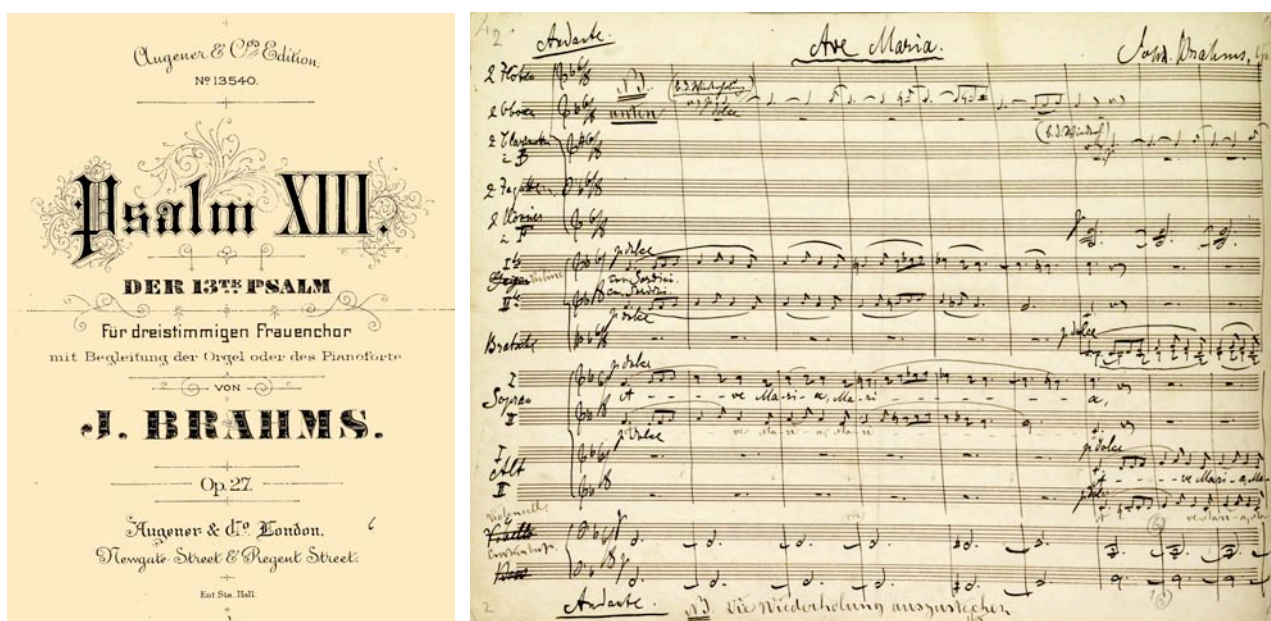 Augener & Co's Edition.
No 13540.
Psalm XIII.
DER 13TE PSALM
Für dreistimmigen Frauenchor
mit Begleitung der Orgel oder des Pianoforte
VON
J. BRAHMS.
Op. 27.
Augener & Co London,
Newgate Street & Regent Street.
Ent Sta. Hall.
6
2
Andante.
Ave Maria.
Joh. Brahms,
2 Flöten
NB
unten
dolce
2 Oboen
2 Clarinetten
in B
2 Fagotte
2 Hörner
in F
p dolce
con Sordini.
con Sordini.
p dolce
Bratsche
p dolce
p dolce
Sopran
I
A - - - ve Ma-ri-a, Ma-ri - - - - - a,
II
ve Ma-ri-a, Ma-ri
p dolce
p dolce
I
Alt
A - - - - ve Mari-a, Ma-
II
p dolce
Violoncell.
2
Andante.
NB Die Wiederholung auszustechen